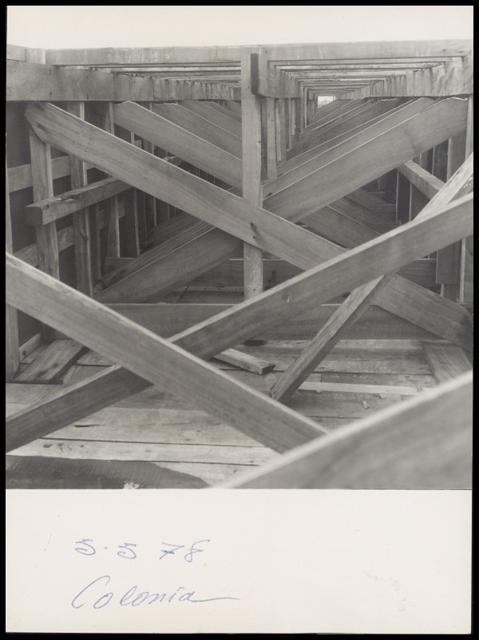 5.5 78
Colonia